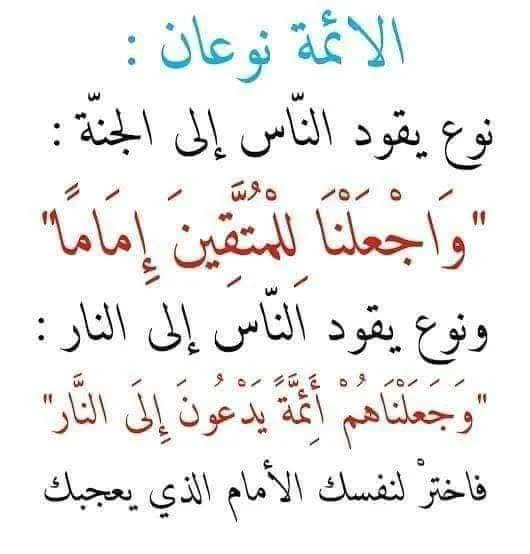 الائمة نوعان :
نوع يقود النّاس إلى الجنّة :
"وَاجْعَلْنَا لِلْمُتَّقِينَ إِمَامًا"
ونوع يقود النّاس إلى النار :
"وَجَعَلْنَاهُمْ أَئِمَّةً يَدْعُونَ إِلَى النَّار"
فاخترْ لنفسك الأمام الذي يعجبك